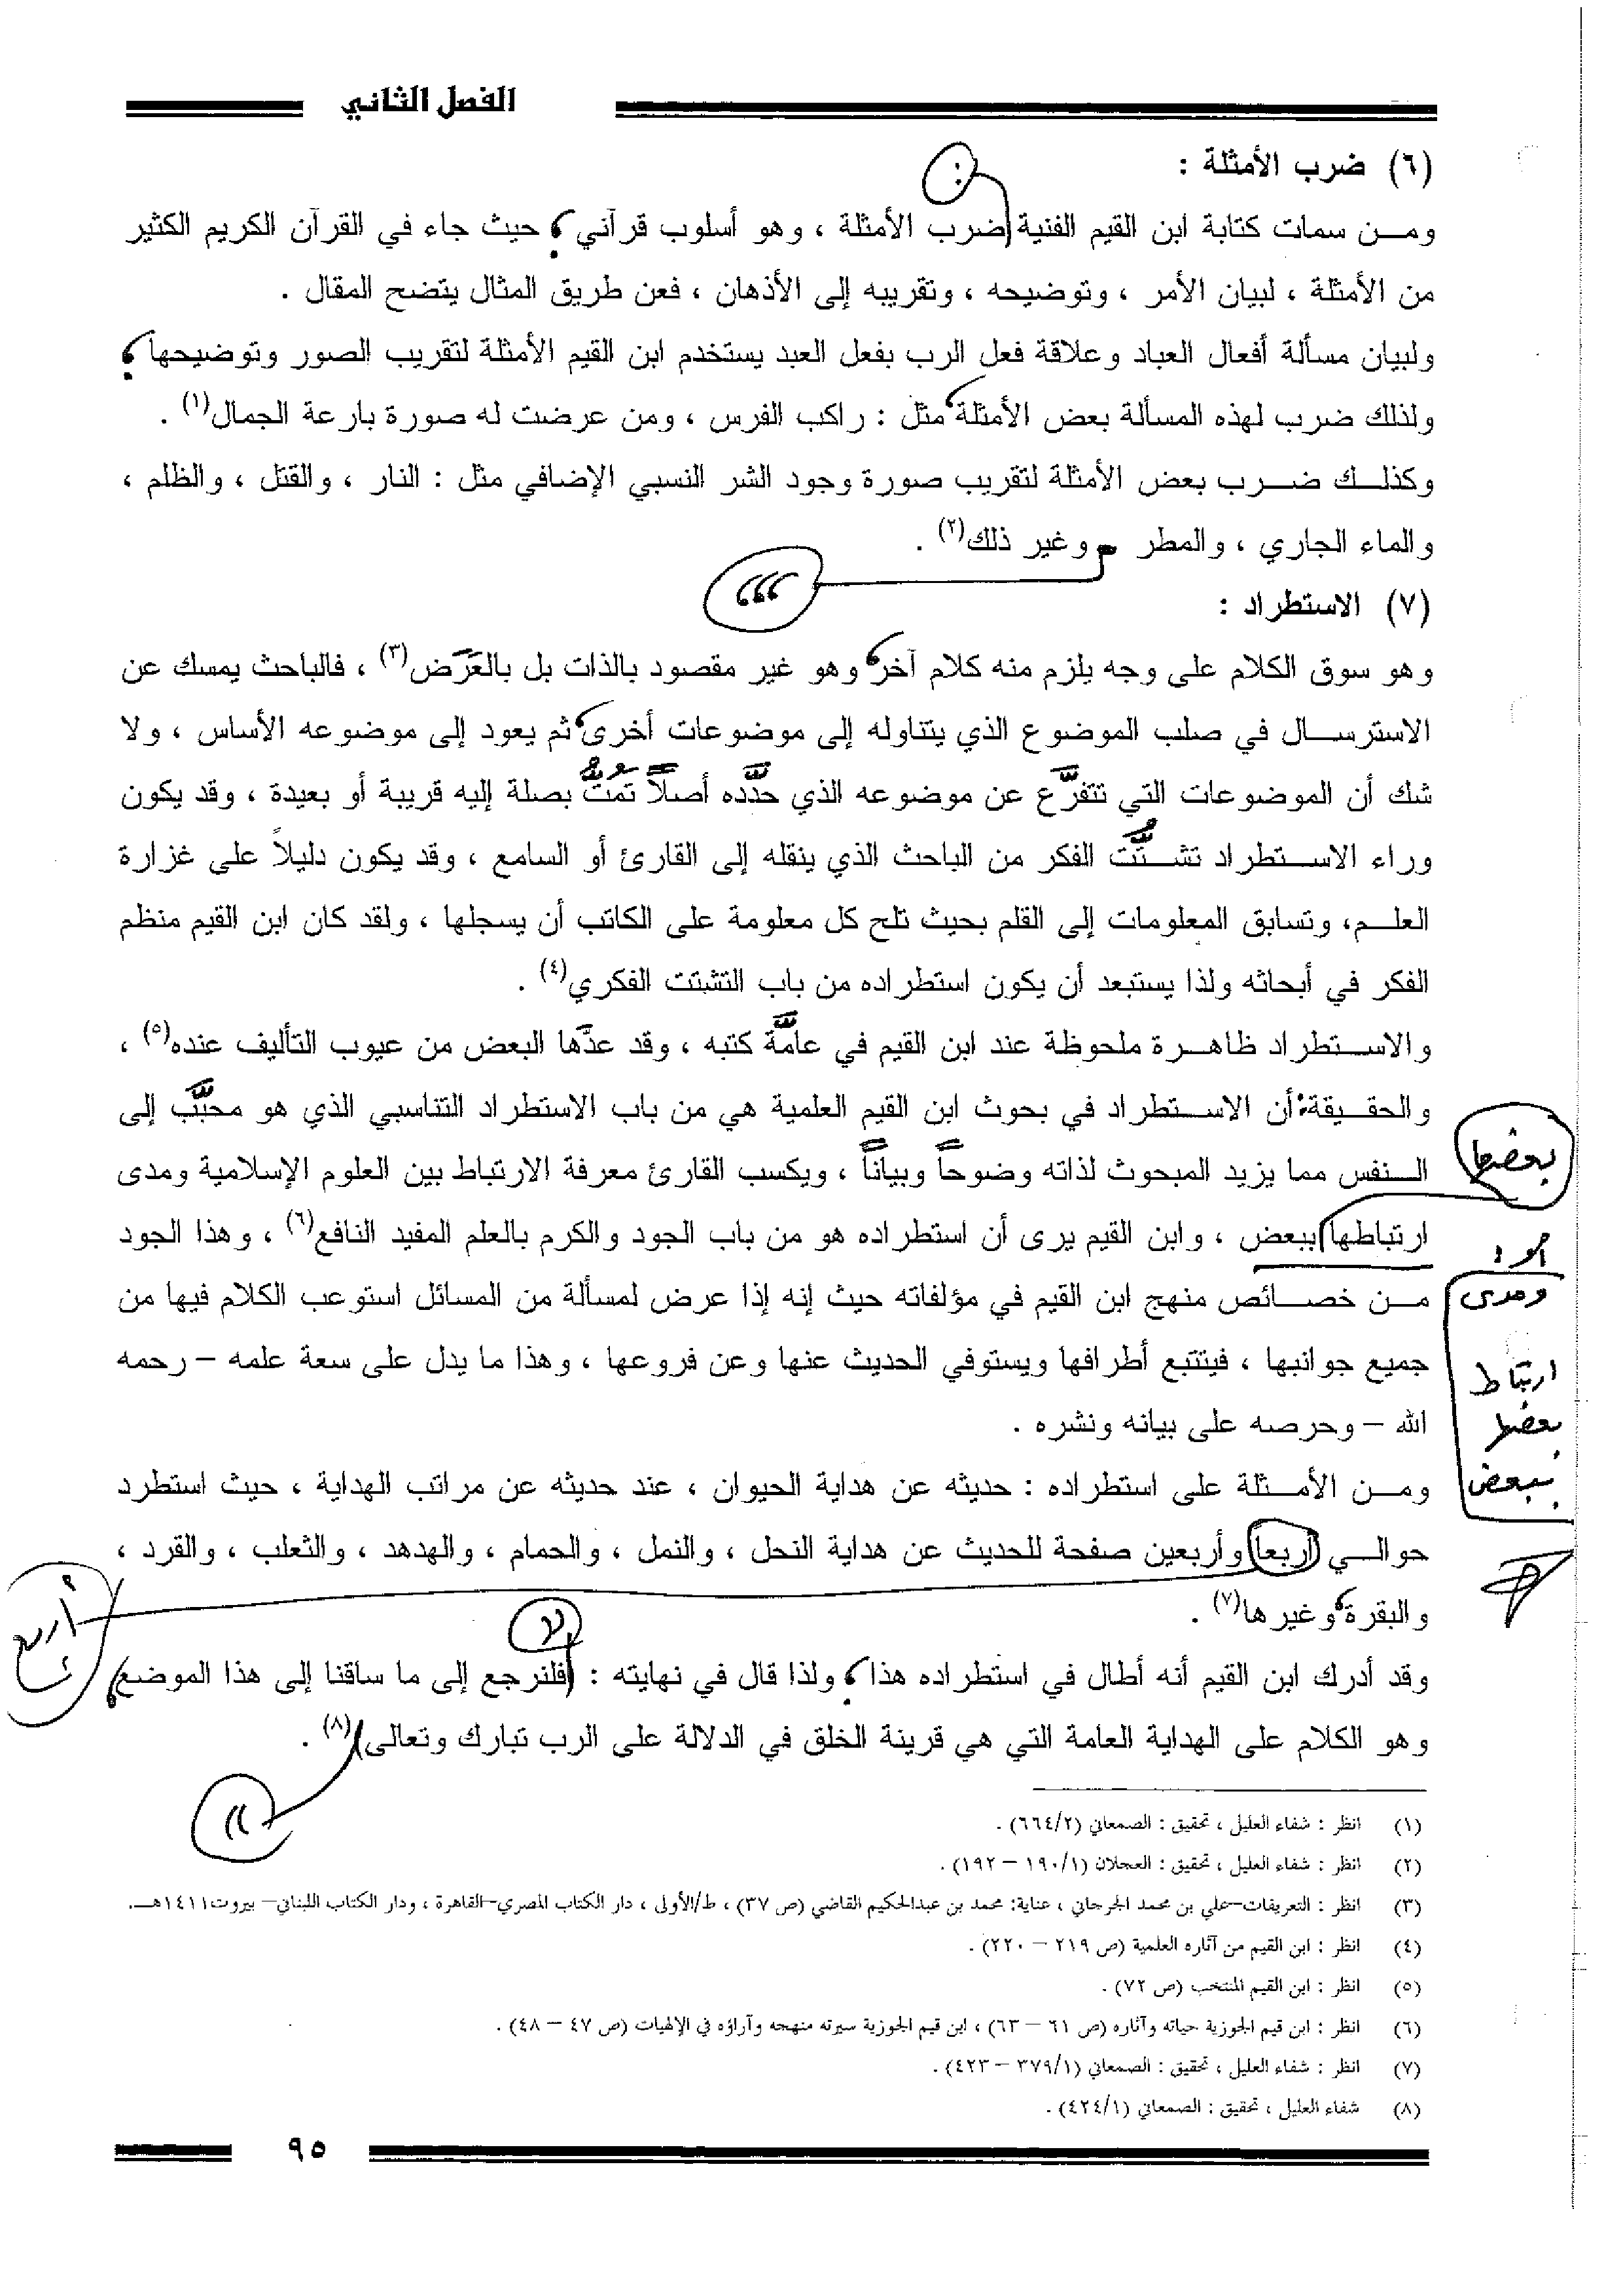 الفصل الثاني
(٦) ضرب الأمثلة :
:
ومن سمات كتابة ابن القيم الفنية ضرب الأمثلة ، وهو أسلوب قرآني ؛ حيث جاء في القرآن الكريم الكثير
من الأمثلة ، لبيان الأمر ، وتوضيحه ، وتقريبه إلى الأذهان ، فعن طريق المثال يتضح المقال .
ولبيان مسألة أفعال العباد وعلاقة فعل الرب بفعل العبد يستخدم ابن القيم الأمثلة لتقريب الصور وتوضيحها ؛
ولذلك ضرب لهذه المسألة بعض الأمثلة ، مثل : راكب الفرس ، ومن عرضت له صورة بارعة الجمال(١) .
وكذلك ضرب بعض الأمثلة لتقريب صورة وجود الشر النسبي الإضافي مثل : النار ، والقتل ، والظلم ،
والماء الجاري ، والمطر وغير ذلك(٢) .
،،،
(٧) الاستطراد :
وهو سوق الكلام على وجه يلزم منه كلام آخر ، وهو غير مقصود بالذات بل بالعَرَض(٣) ، فالباحث يمسك عن
الاسترسال في صلب الموضوع الذي يتناوله إلى موضوعات أخرى ، ثم يعود إلى موضوعه الأساس ، ولا
شك أن الموضوعات التي تتفرَّع عن موضوعه الذي حدَّده أصلاً تَمُتُّ بصلة إليه قريبة أو بعيدة ، وقد يكون
وراء الاستطراد تشتُّت الفكر من الباحث الذي ينقله إلى القارئ أو السامع ، وقد يكون دليلاً على غزارة
العلم، وتسابق المعلومات إلى القلم بحيث تلح كل معلومة على الكاتب أن يسجلها ، ولقد كان ابن القيم منظم
الفكر في أبحاثه ولذا يستبعد أن يكون استطراده من باب التشتت الفكري(٤) .
والاستطراد ظاهرة ملحوظة عند ابن القيم في عامَّة كتبه ، وقد عدَّها البعض من عيوب التأليف عنده(٥) ،
والحقيقة: أن الاستطراد في بحوث ابن القيم العلمية هي من باب الاستطراد التناسبي الذي هو محبَّب إلى
النفس مما يزيد المبحوث لذاته وضوحاً وبياناً ، ويكسب القارئ معرفة الارتباط بين العلوم الإسلامية ومدى
بعضها
ارتباطها ببعض ، وابن القيم يرى أن استطراده هو من باب الجود والكرم بالعلم المفيد النافع(٦) ، وهذا الجود
من خصائص منهج ابن القيم في مؤلفاته حيث إنه إذا عرض لمسألة من المسائل استوعب الكلام فيها من
ومدى
جميع جوانبها ، فيتتبع أطرافها ويستوفي الحديث عنها وعن فروعها ، وهذا ما يدل على سعة علمه – رحمه
ارتباط
الله – وحرصه على بيانه ونشره .
بعضها
ومن الأمثلة على استطراده : حديثه عن هداية الحيوان ، عند حديثه عن مراتب الهداية ، حيث استطرد
ببعض
حوالي أربعا وأربعين صفحة للحديث عن هداية النحل ، والنمل ، والحمام ، والهدهد ، والثعلب ، والقرد ،
أربع
والبقرة ، وغيرها(٧) .
وقد أدرك ابن القيم أنه أطال في استطراده هذا ؛ ولذا قال في نهايته : (فلنرجع إلى ما ساقنا إلى هذا الموضع ،
وهو الكلام على الهداية العامة التي هي قرينة الخلق في الدلالة على الرب تبارك وتعالى)(٨) .
((
(١) انظر : شفاء العليل ، تحقيق : الصمعاني (٦٦٤/٢) .
(٢) انظر : شفاء العليل ، تحقيق : العجلان (١٩٠/١ – ١٩٢) .
(٣) انظر : التعريفات–علي بن محمد الجرجاني ، عناية: محمد بن عبدالحكيم القاضي (ص ٣٧) ، ط/الأولى ، دار الكتاب المصري–القاهرة ، ودار الكتاب اللبناني– بيروت١٤١١هـ.
(٤) انظر : ابن القيم من آثاره العلمية (ص ٢١٩ – ٢٢٠) .
(٥) انظر : ابن القيم المنتخب (ص ٧٢) .
(٦) انظر : ابن قيم الجوزية حياته وآثاره (ص ٦١ – ٦٣) ، ابن قيم الجوزية سيرته منهجه وآراؤه في الإلهيات (ص ٤٧ – ٤٨) .
(٧) انظر : شفاء العليل ، تحقيق : الصمعاني (٣٧٩/١ – ٤٢٣) .
(٨) شفاء العليل ، تحقيق : الصمعاني (٤٢٤/١) .
٩٥